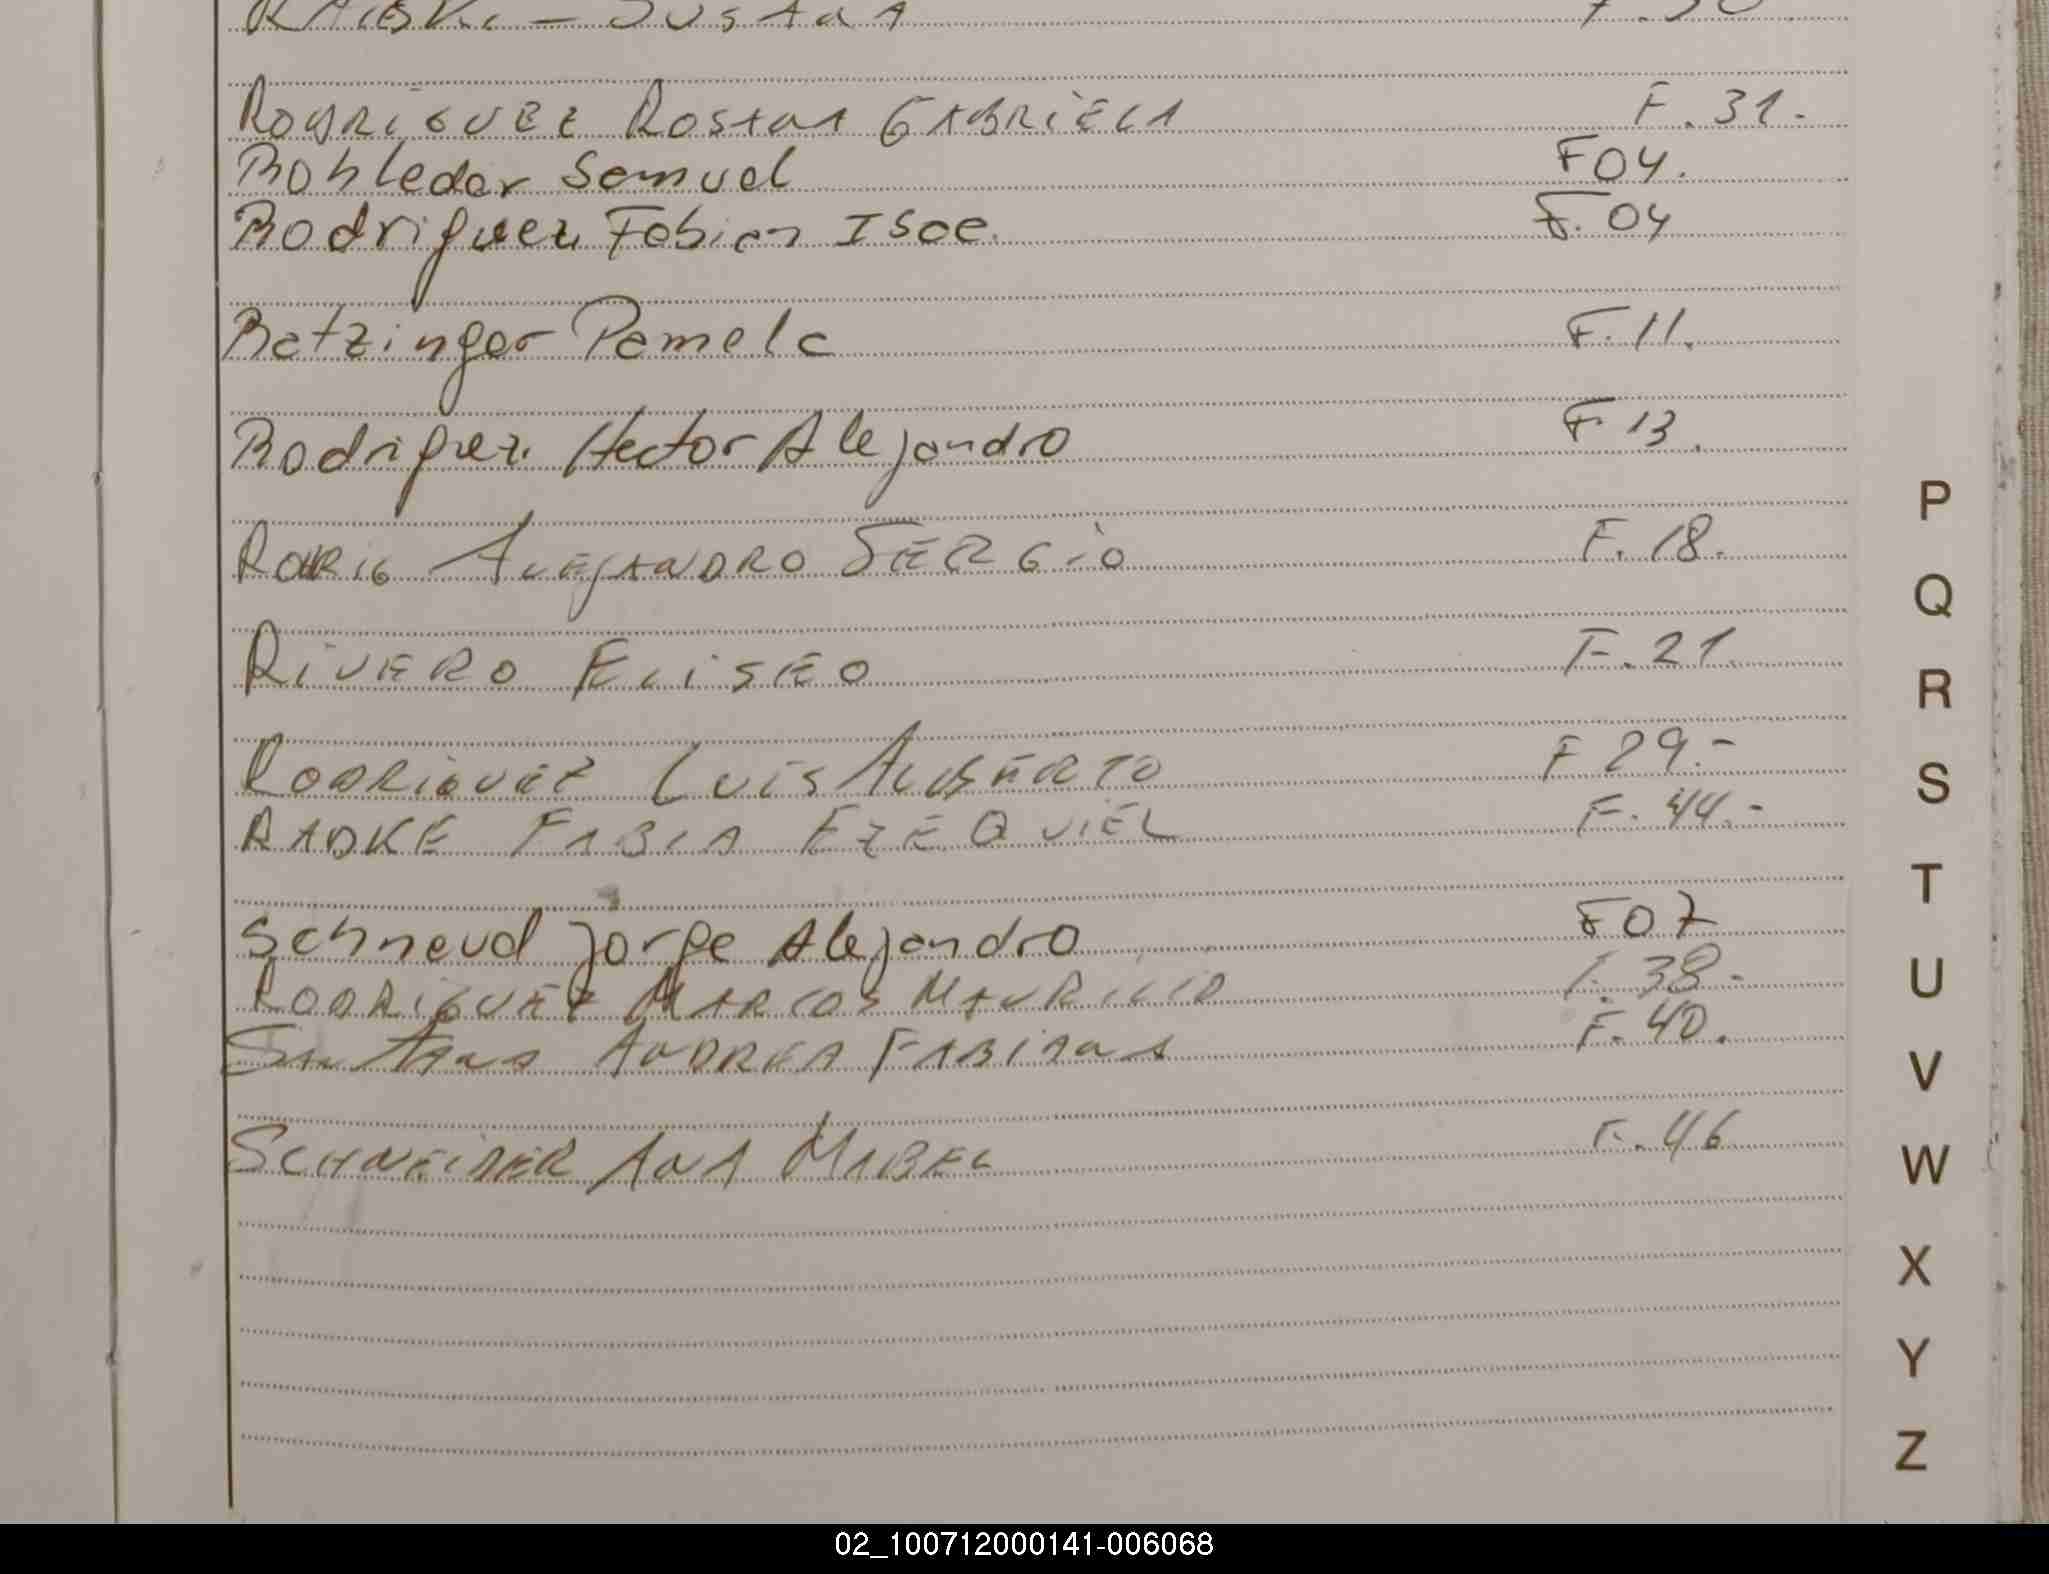 Rodriguez Rosana Gabriela F.31.
Rohleder Samuel F04.
Rodriguez Fabian Isae. F.04
Ratzinger Pamela F.11.
Rodriguez Hector Alejandro F13.
Alejandro Sergio F.18.
Rivero Eliseo F.21
Rodriguez Luis Alberto F29.-
Radke Fabia Ezequiel F.44.-
Schneud Jorge Alejandro F07
Rodriguez Marcos Mauricio F.38-
Santana Andrea Fabiana F.40.
Schneider Ana Mabel F.46
P
Q
R
S
T
U
V
W
X
Y
Z
02_100712000141-006068